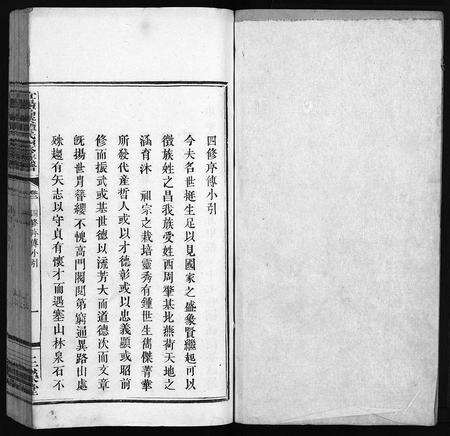 四修序傳小引
今夫名世挺生足以見國家之盛象賢繼起可以
徵族姓之昌我族受姓西周肇基北燕荷天地之
涵育沐 祖宗之栽培靈秀有鍾世生儁傑菁華
所發代產哲人或以才德彰或以忠義顯或昭前
修而振武或基世德以流芳大而道德次而文章
旣揚世月簪纓不愧高門閥閱第窮通異路出處
殊趨有矢志以守貞有懷才而遇塞山林泉石不
四修序傳小引
一